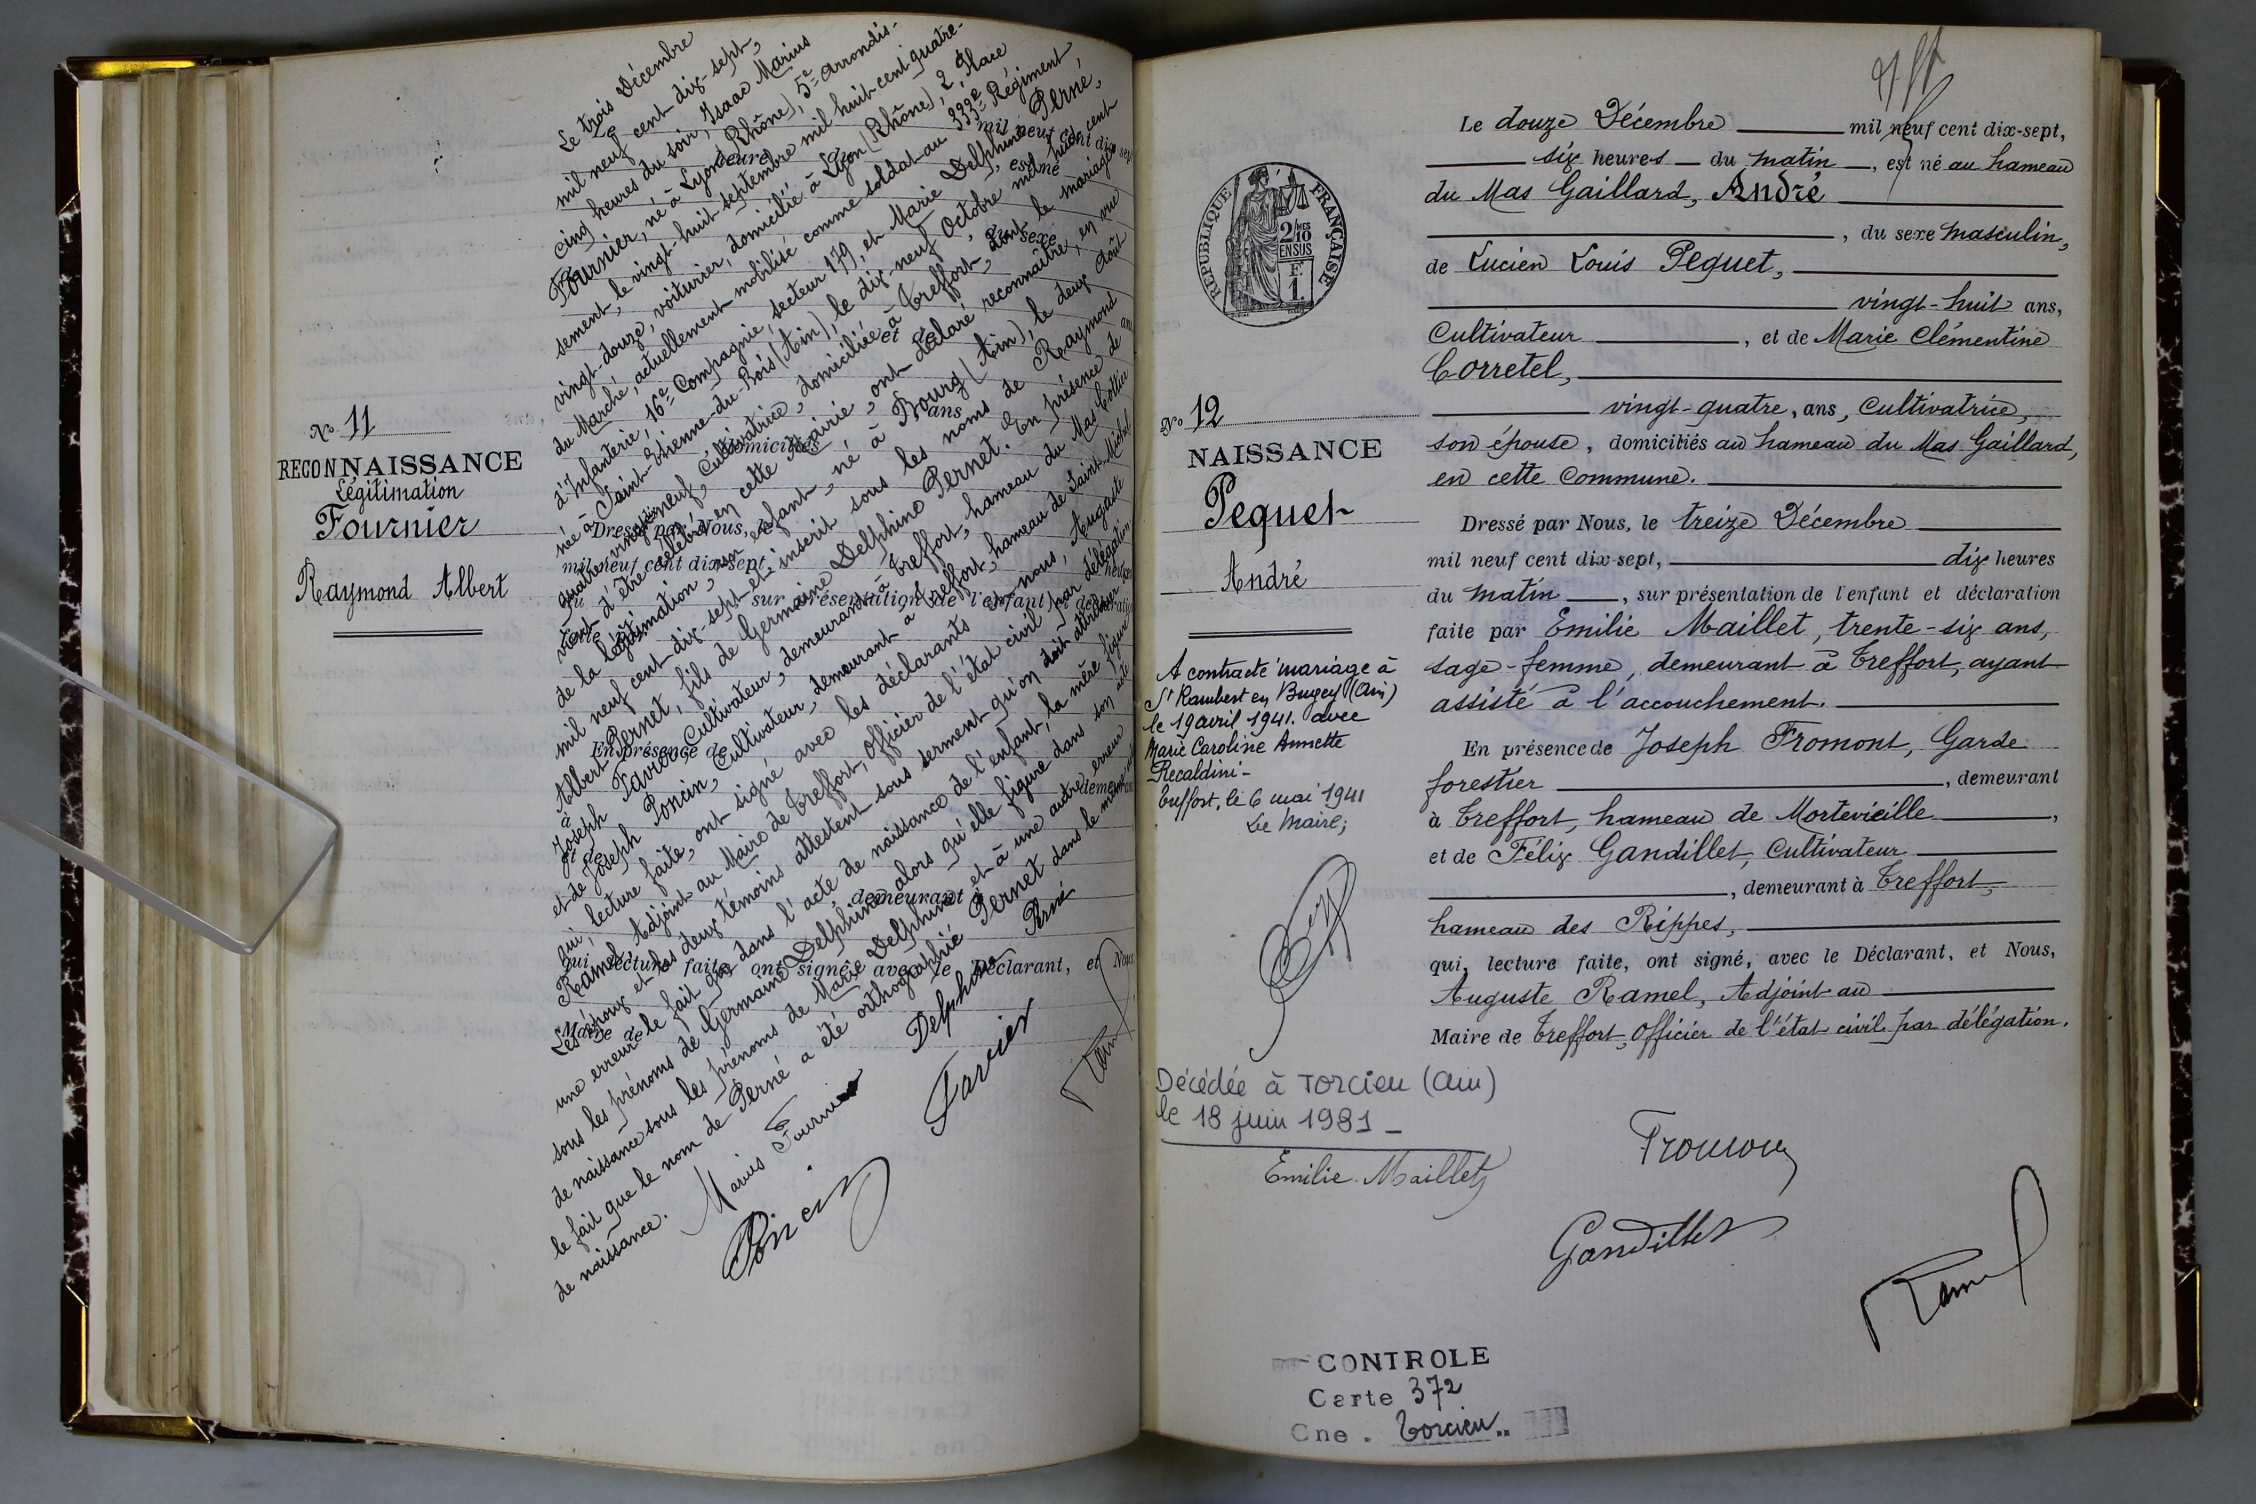 No 11
RECONNAISSANCE
Légitimation
Fournier
Raymond Albert
Le trois Décembre
mil neuf cent dix-sept,
cinq heures du soir, Isaac Marius
Fournier, né à Lyon (Rhône), 5e arrondis-
sement, le vingt-huit septembre mil huit cent quatre-
vingt-douze, voiturier, domicilié à Lyon (Rhône), 2, Place
du Marché, actuellement mobilisé comme soldat au 333e Régiment
d'Infanterie, 16e Compagnie, secteur 179, et Marie Delphine Perné,
née à Saint-Étienne-du-Bois (Ain), le dix-neuf Octobre mil huit cent
quatre-vingt-neuf, Cultivatrice, domiciliée à Treffort, dont le mariage
vient d'être célébré en cette Mairie, ont déclaré reconnaître, en vue
de la légitimation, un enfant, né à Bourg (Ain), le deux Août
mil neuf cent dix-sept et inscrit sous les noms de Raymond
Albert Pernet, fils de Germaine Delphine Pernet. En présence de
Joseph Favier, Cultivateur, demeurant à Treffort, hameau du Mas Collier
et de Joseph Poncin, Cultivateur, demeurant à Treffort, hameau de Saint-Michel
qui, lecture faite, ont signé avec les déclarants et nous, Auguste
Ramel, Adjoint au Maire de Treffort, Officier de l'état civil par délégation.
Les époux et les deux témoins attestent sous serment qu'on doit attribuer
une erreur le fait que dans l'acte de naissance de l'enfant, la mère figure
sous les prénoms de Germaine Delphine alors qu'elle figure dans son acte
de naissance sous les prénoms de Marie Delphine et à une autre erreur
le fait que le nom de Perné a été orthographié Pernet dans le même acte
de naissance.
heure
mil neuf cent dix-sept
est né
du sexe
et de
ans
domiciliés
Dressé par Nous, le
mil neuf cent dix-sept
heures
sur présentation de l'enfant et déclaration
En présence de
demeurant
à
et de
demeurant à
qui, lecture faite, ont signé, avec le Déclarant, et Nous,
Maire de
Marius Fournier
Delphine Perné
Favier
Poncin
Ramel
Le douze Décembre mil neuf cent dix-sept,
six heures du matin, est né au hameau
du Mas Gaillard, André
, du sexe masculin,
de Lucien Louis Pequet,
vingt-huit ans,
Cultivateur, et de Marie Clémentine
Corretel,
vingt-quatre, ans, Cultivatrice,
son épouse, domiciliés au hameau du Mas Gaillard,
en cette Commune.
Dressé par Nous, le treize Décembre
mil neuf cent dix-sept, dix heures
du matin, sur présentation de l'enfant et déclaration
faite par Emilie Maillet, trente-six ans,
sage-femme, demeurant à Treffort, ayant
assisté à l'accouchement.
En présence de Joseph Fromont, Garde
forestier, demeurant
à Treffort, hameau de Mortevieille,
et de Félix Gandillet, Cultivateur
, demeurant à Treffort,
hameau des Rippes,
qui, lecture faite, ont signé, avec le Déclarant, et Nous,
Auguste Ramel, Adjoint au
Maire de Treffort, Officier de l'état civil par délégation.
RÉPUBLIQUE FRANÇAISE
2/10
EN SUS
F.
1.
No 12
NAISSANCE
Pequet
André
A contracté mariage à
St Rambert en Bugey (Ain)
le 19 avril 1941 avec
Marie Caroline Annette
Recaldini-
Treffort, le 6 mai 1941
Le Maire;
Décédée à Torcieu (Ain)
le 18 juin 1981 -
Emilie Maillet
Fromont
Gandillet
Ramel
CONTROLE
Carte 372
Cne. Torcieu..